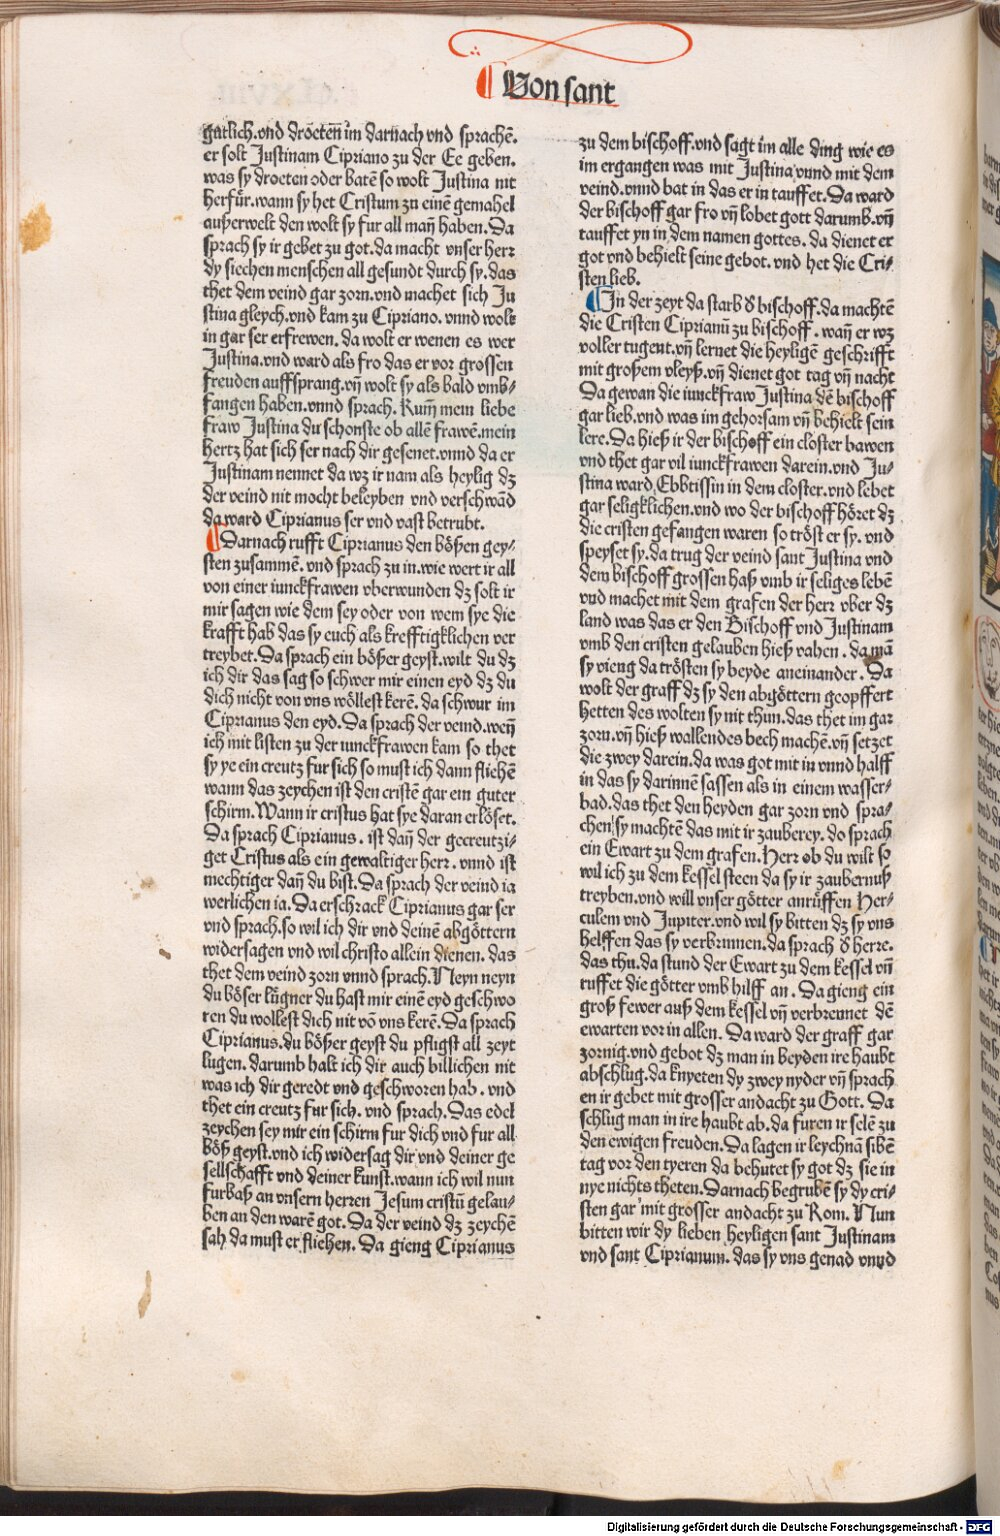 ¶ Von sant
gütlich.vnd dröeten im darnach vnd sprachē.
er solt Justinam Cipriano zu der Ee geben.
was sy droeten oder batē so wolt Justina nit
herfür.wann sy het Cristum zu einē gemahel
außerwelt den wolt sy fur all mañ haben.Da
sprach sy ir gebet zu got.da macht vnser herr
dy siechen menschen all gesundt durch sy.das
thet dem veind gar zorn.vnd machet sich Ju
stina gleych.vnd kam zu Cipriano. vnnd wolt
in gar ser erfrewen. da wolt er wenen es wer
Justina.vnd ward als fro das er vor grossen
freuden auffsprang.vñ wolt sy als bald vmb⸗
fangen haben.vnnd sprach. Kum̃ mein liebe
fraw Justina du schonste ob allē frawē.mein
hertz hat sich ser nach dir gesenet.vnnd da er
Justinam nennet da wz ir nam als heylig dz
der veind nit mocht beleyben vnd verschwād
da ward Ciprianus ser vnd vast betrubt.
¶ Darnach rufft Ciprianus den bößen gey⸗
sten zusammē. vnd sprach zu in.wie wert ir all
von einer iunckfrawen vberwunden dz solt ir
mir sagen wie dem sey oder von wem sye die
krafft hab das sy euch als krefftigklichen ver
treybet.Da sprach ein bößer geyst.wilt du dz
ich dir das sag so schwer mir einen eyd dz du
dich nicht von vns wöllest kerē. da schwur im
Ciprianus den eyd.Da sprach der veind.weñ
ich mit listen zu der iunckfrawen kam so thet
sy ye ein creutz fur sich so must ich dann fliehē
wann das zeychen ist den cristē gar ein guter
schirm.Wann ir cristus hat sye daran erlöset.
Da sprach Ciprianus. ist dañ der gecreutzi⸗
get Cristus als ein gewaltiger herr. vnnd ist
mechtiger dañ du bist.Da sprach der veind ia
werlichen ia.Da erschrack Ciprianus gar ser
vnd sprach.so wil ich dir vnd deinē abgöttern
widersagen vnd wil christo allein dienen. das
thet dem veind zorn vnnd sprach.Neyn neyn
du böser lügner du hast mir einē eyd geschwo
ren du wollest dich nit vō vns kerē.Da sprach
Ciprianus.du bößer geyst du pfligst all zeyt
lugen. darumb halt ich dir auch billichen nit
was ich dir geredt vnd geschworen hab. vnd
thet ein creutz fur sich. vnd sprach. Das edel
zeychen sey mir ein schirm fur dich vnd fur all
böß geyst.vnd ich widersag dir vnd deiner ge
sellschafft vnd deiner kunst.wann ich wil nun
furbaß an vnsern herren Jesum cristū gelau⸗
ben an den warē got. Da der veind dz zeychē
sah da must er fliehen. Da gieng Ciprianus
zu dem bischoff.vnd sagt im alle ding wie es
im ergangen was mit Justina vnnd mit dem
veind.vnnd bat in das er in tauffet.Da ward
der bischoff gar fro vñ lobet gott darumb.vñ
tauffet yn in dem namen gottes. da dienet er
got vnd behielt seine gebot. vnd het die Cri⸗
sten lieb.
¶ In der zeyt da starb ď bischoff.da machtē
die Cristen Ciprianū zu bischoff. wañ er wz
voller tugent.vñ lernet die heyligē geschrifft
mit großem vleyß.vñ dienet got tag vñ nacht
Da gewan die iunckfraw Justina dē bischoff
gar lieb.vnd was im gehorsam vñ behielt sein
lere.Da hieß ir der bischoff ein closter bawen
vnd thet gar vil iunckfrawen darein.vnd Ju⸗
stina ward Ebbtissin in dem closter.vnd lebet
gar seligklichen.vnd wo der bischoff höret dz
die cristen gefangen waren so tröst er sy. vnd
speyset sy.da trug der veind sant Justina vnd
dem bischoff grossen haß vmb ir seliges lebē
vnd machet mit dem grafen der herr vber dz
land was das er den Bischoff vnd Justinam
vmb den cristen gelauben hieß vahen. da mā
sy vieng da trösten sy beyde aneinander. Da
wolt der graff dz sy den abgöttern geopffert
hetten des wolten sy nit thun.das thet im gar
zorn.vñ hieß wallendes bech machē.vñ setzet
die zwey darein.da was got mit in vnnd halff
in das sy darinnē sassen als in einem wasser⸗
bad.das thet den heyden gar zorn vnd spra⸗
chen sy machtē das mit ir zauberey. do sprach
ein Ewart zu dem grafen.Herr ob du wilt so
wil ich zu dem kessel steen da sy ir zaubernuß
treyben.vnd will vnser götter anrüffen Her⸗
culem vnd Jupiter.vnd wil sy bitten dz sy vns
helffen das sy verbrinnen.da sprach ď herre.
das thu.da stund der Ewart zu dem kessel vñ
ruffet die götter vmb hilff an. Da gieng ein
groß fewer auß dem kessel vñ verbrennet dē
ewarten vor in allen. Da ward der graff gar
zornig.vnd gebot dz man in beyden ire haubt
abschlug.da knyeten dy zwey nyder vñ sprach
en ir gebet mit grosser andacht zu Gott. Da
schlug man in ire haubt ab.da furen ir selē zu
den ewigen freuden.Da lagen ir leychnā sibē
tag vor den tyeren da behutet sy got dz sie in
nye nichts theten.Darnach begrubē sy dy cri⸗
sten gar mit grosser andacht zu Rom. Nun
bitten wir dy lieben heyligen sant Justinam
vnd sant Ciprianum. das sy vns genad vnnd
Digitalisierung gefördert durch die Deutsche Forschungsgemeinschaft - DFG